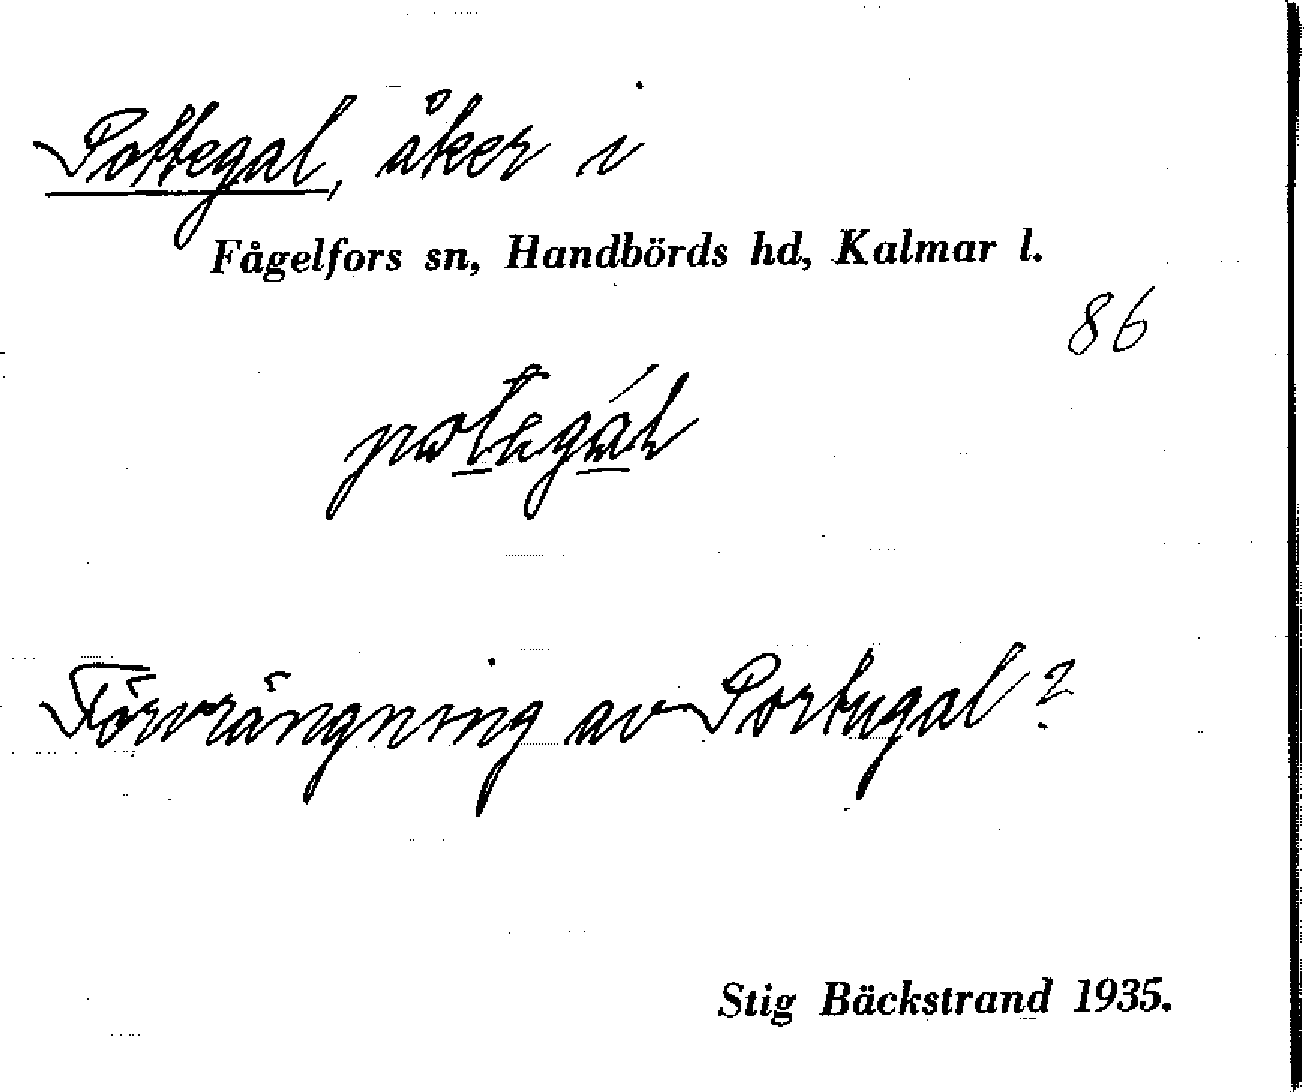 Pottegal, åker i
Fågelfors sn, Handbörds hd, Kalmar l.
86
Förvrängning av Portugal?
Stig Bäckstrand 1935.